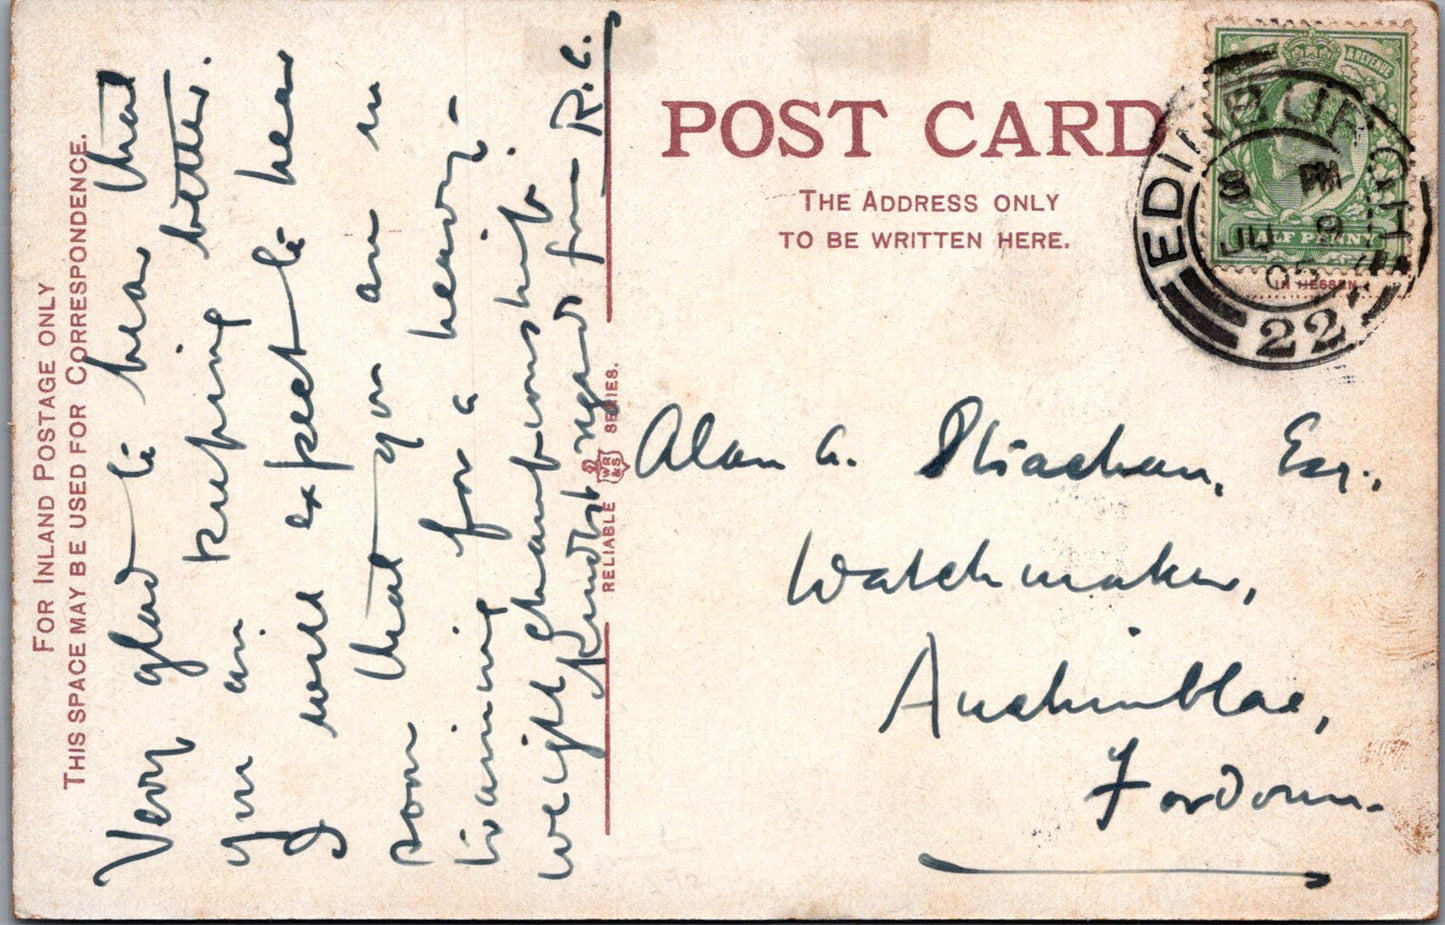 FOR INLAND POSTAGE ONLY
THIS SPACE MAY BE USED FOR CORRESPONDENCE.
Very glad to hear that
you are keeping better.
I will expect to hear
soon that you are in
training for a heavy-
weight championship.
Kindest regards from R.C.
RELIABLE WR&S SERIES.
POST CARD
THE ADDRESS ONLY
TO BE WRITTEN HERE.
& REVENUE
HALF PENNY
EDINBURGH
JU 9
05
22
IN HESSEN
Alan G. Strachan, Esq.,
Watchmaker,
Auchinblae,
Fordoun.